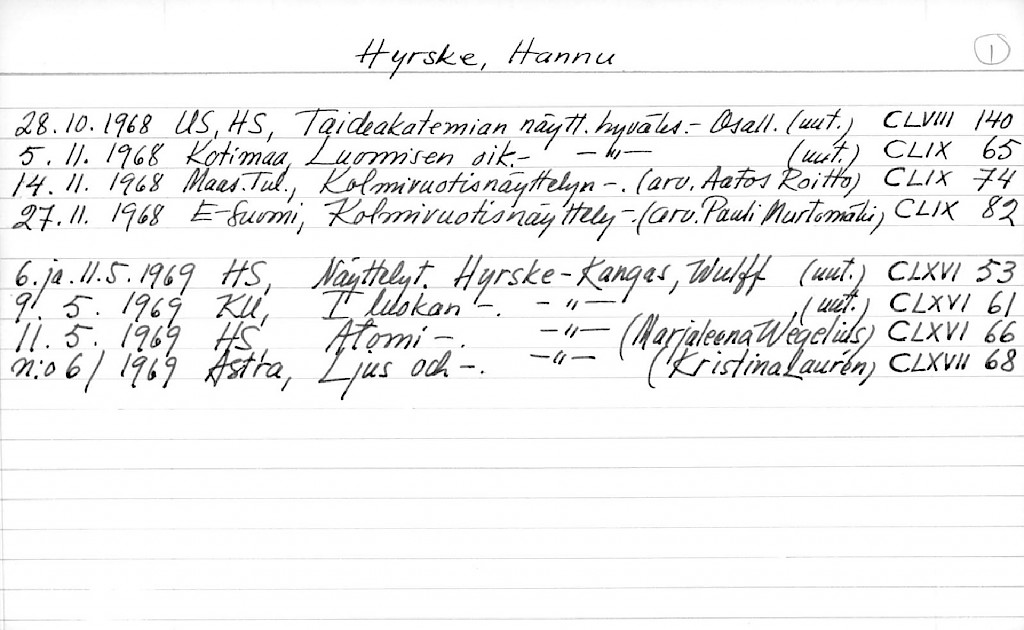 Hyrske, Hannu 1
28.10.1968 US, HS, Taideakatemian näytt. hyväks.- Osall. (uut.) CLVIII 140
5.11. 1968 Kotimaa, Luomisen oik.- -"- (uut.) CLIX 65
14.11. 1968 Maas.Tul., Kolmivuotisnäyttelyn -. (arv. Aatos Roitto) CLIX 74
27.11. 1968 E-Suomi, Kolmivuotisnäyttely -. (arv. Pauli Nurtomäki) CLIX 82
6.ja.11.5.1969 HS, Näyttelyt. Hyrske-Kangas, Wulff (uut.) CLXVI 53
9. 5. 1969 KU, I luokan -. -"- , (uut.) CLXVI 61
11. 5. 1969 HS, Atomi -. -"- (Marjaleena Wegelius) CLXVI 66
n:o 6/ 1969 Astra, Ljus och -. -"- (Kristina Laurén) CLXVII 68